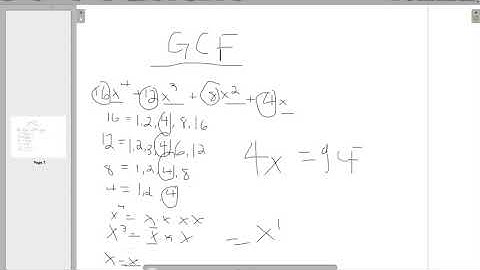 GCF
16x⁴ + 12x³ + 8x² + 4x
16 = 1,2,4,8,16
12 = 1,2,3,4,6,12
8 = 1,2,4,8
4 = 1,2,4
4x = gcf
x⁴ = x · x x x
x³ = x · x · x
= x¹
x = x
Page 1